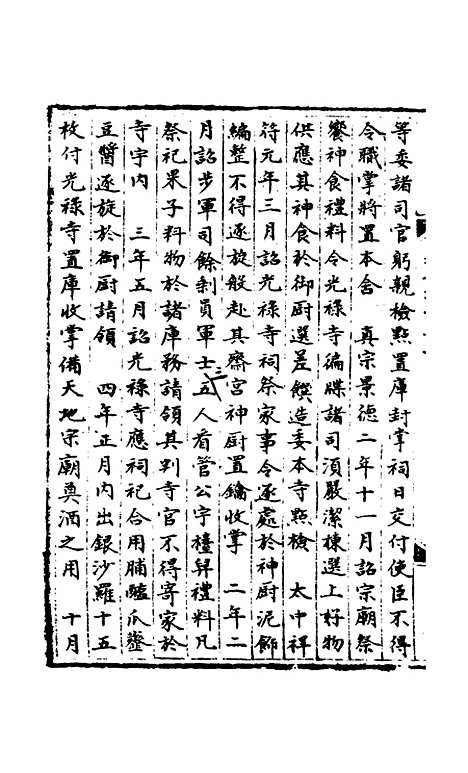 等委諸司官躬親檢㸃置庫封掌祠日交付使臣不得
令職掌將置本舍　真宗景德二年十一月詔宗廟祭
饗神食禮料令光祿寺徧牒諸司湏嚴潔棟選上好物
供應其神食於御厨選差饌造委本寺㸃檢　太中祥
符元年三月詔光祿寺祠祭家事令逐處於神厨泥飾
編整不得逐旋般赴其齋宮神厨置鑰收掌　二年二
月詔步軍司餘剩員軍士五人看管公宇檯舁禮料凡
祭祀果子料物於諸庫務請領其判寺官不得寄家於
寺宇內　三年五月詔光祿寺應祠祀合用脯醯瓜虀
豆醬逐旋於御厨請領　四年正月內出銀沙羅十五
枚付光祿寺置庫收掌備天地宗廟奠酒之用　十月